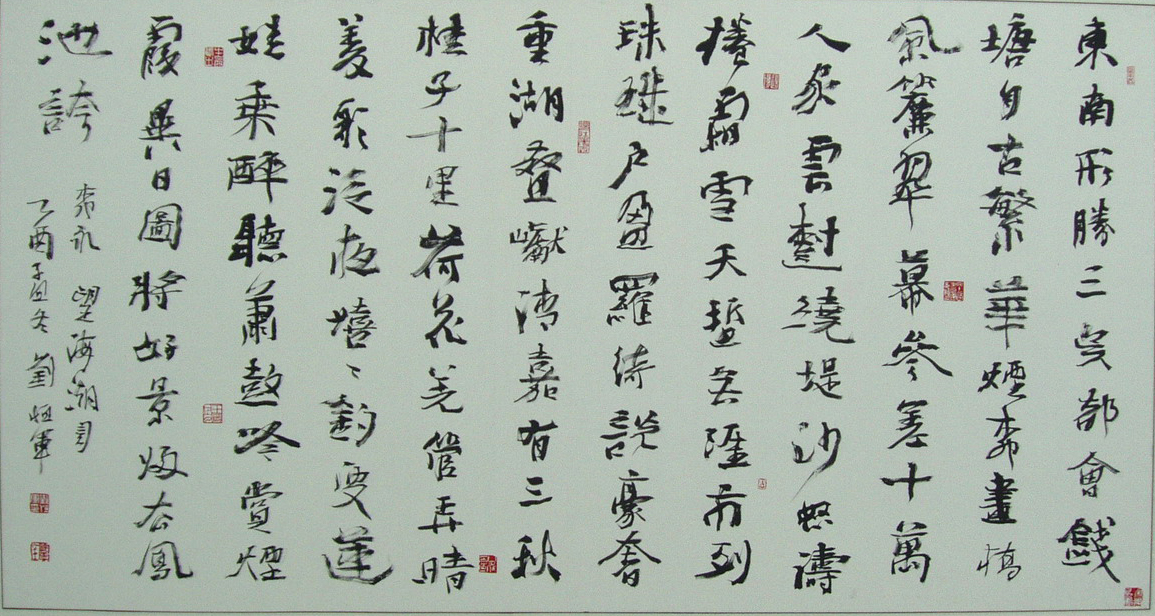 東南形勝三吳都會錢
塘自古繁華煙柳畫橋
風簾翠幕參差十萬
人家雲樹繞堤沙怒濤
捲霜雪天塹無涯市列
珠璣戶盈羅綺競豪奢
重湖疊巘清嘉有三秋
桂子十里荷花羌管弄晴
菱歌泛夜嬉〻釣叟蓮
娃乘醉聽簫鼓吟賞煙
霞異日圖將好景歸去鳳
池誇
柳永 望海潮詞
乙酉孟冬 劉恒軍